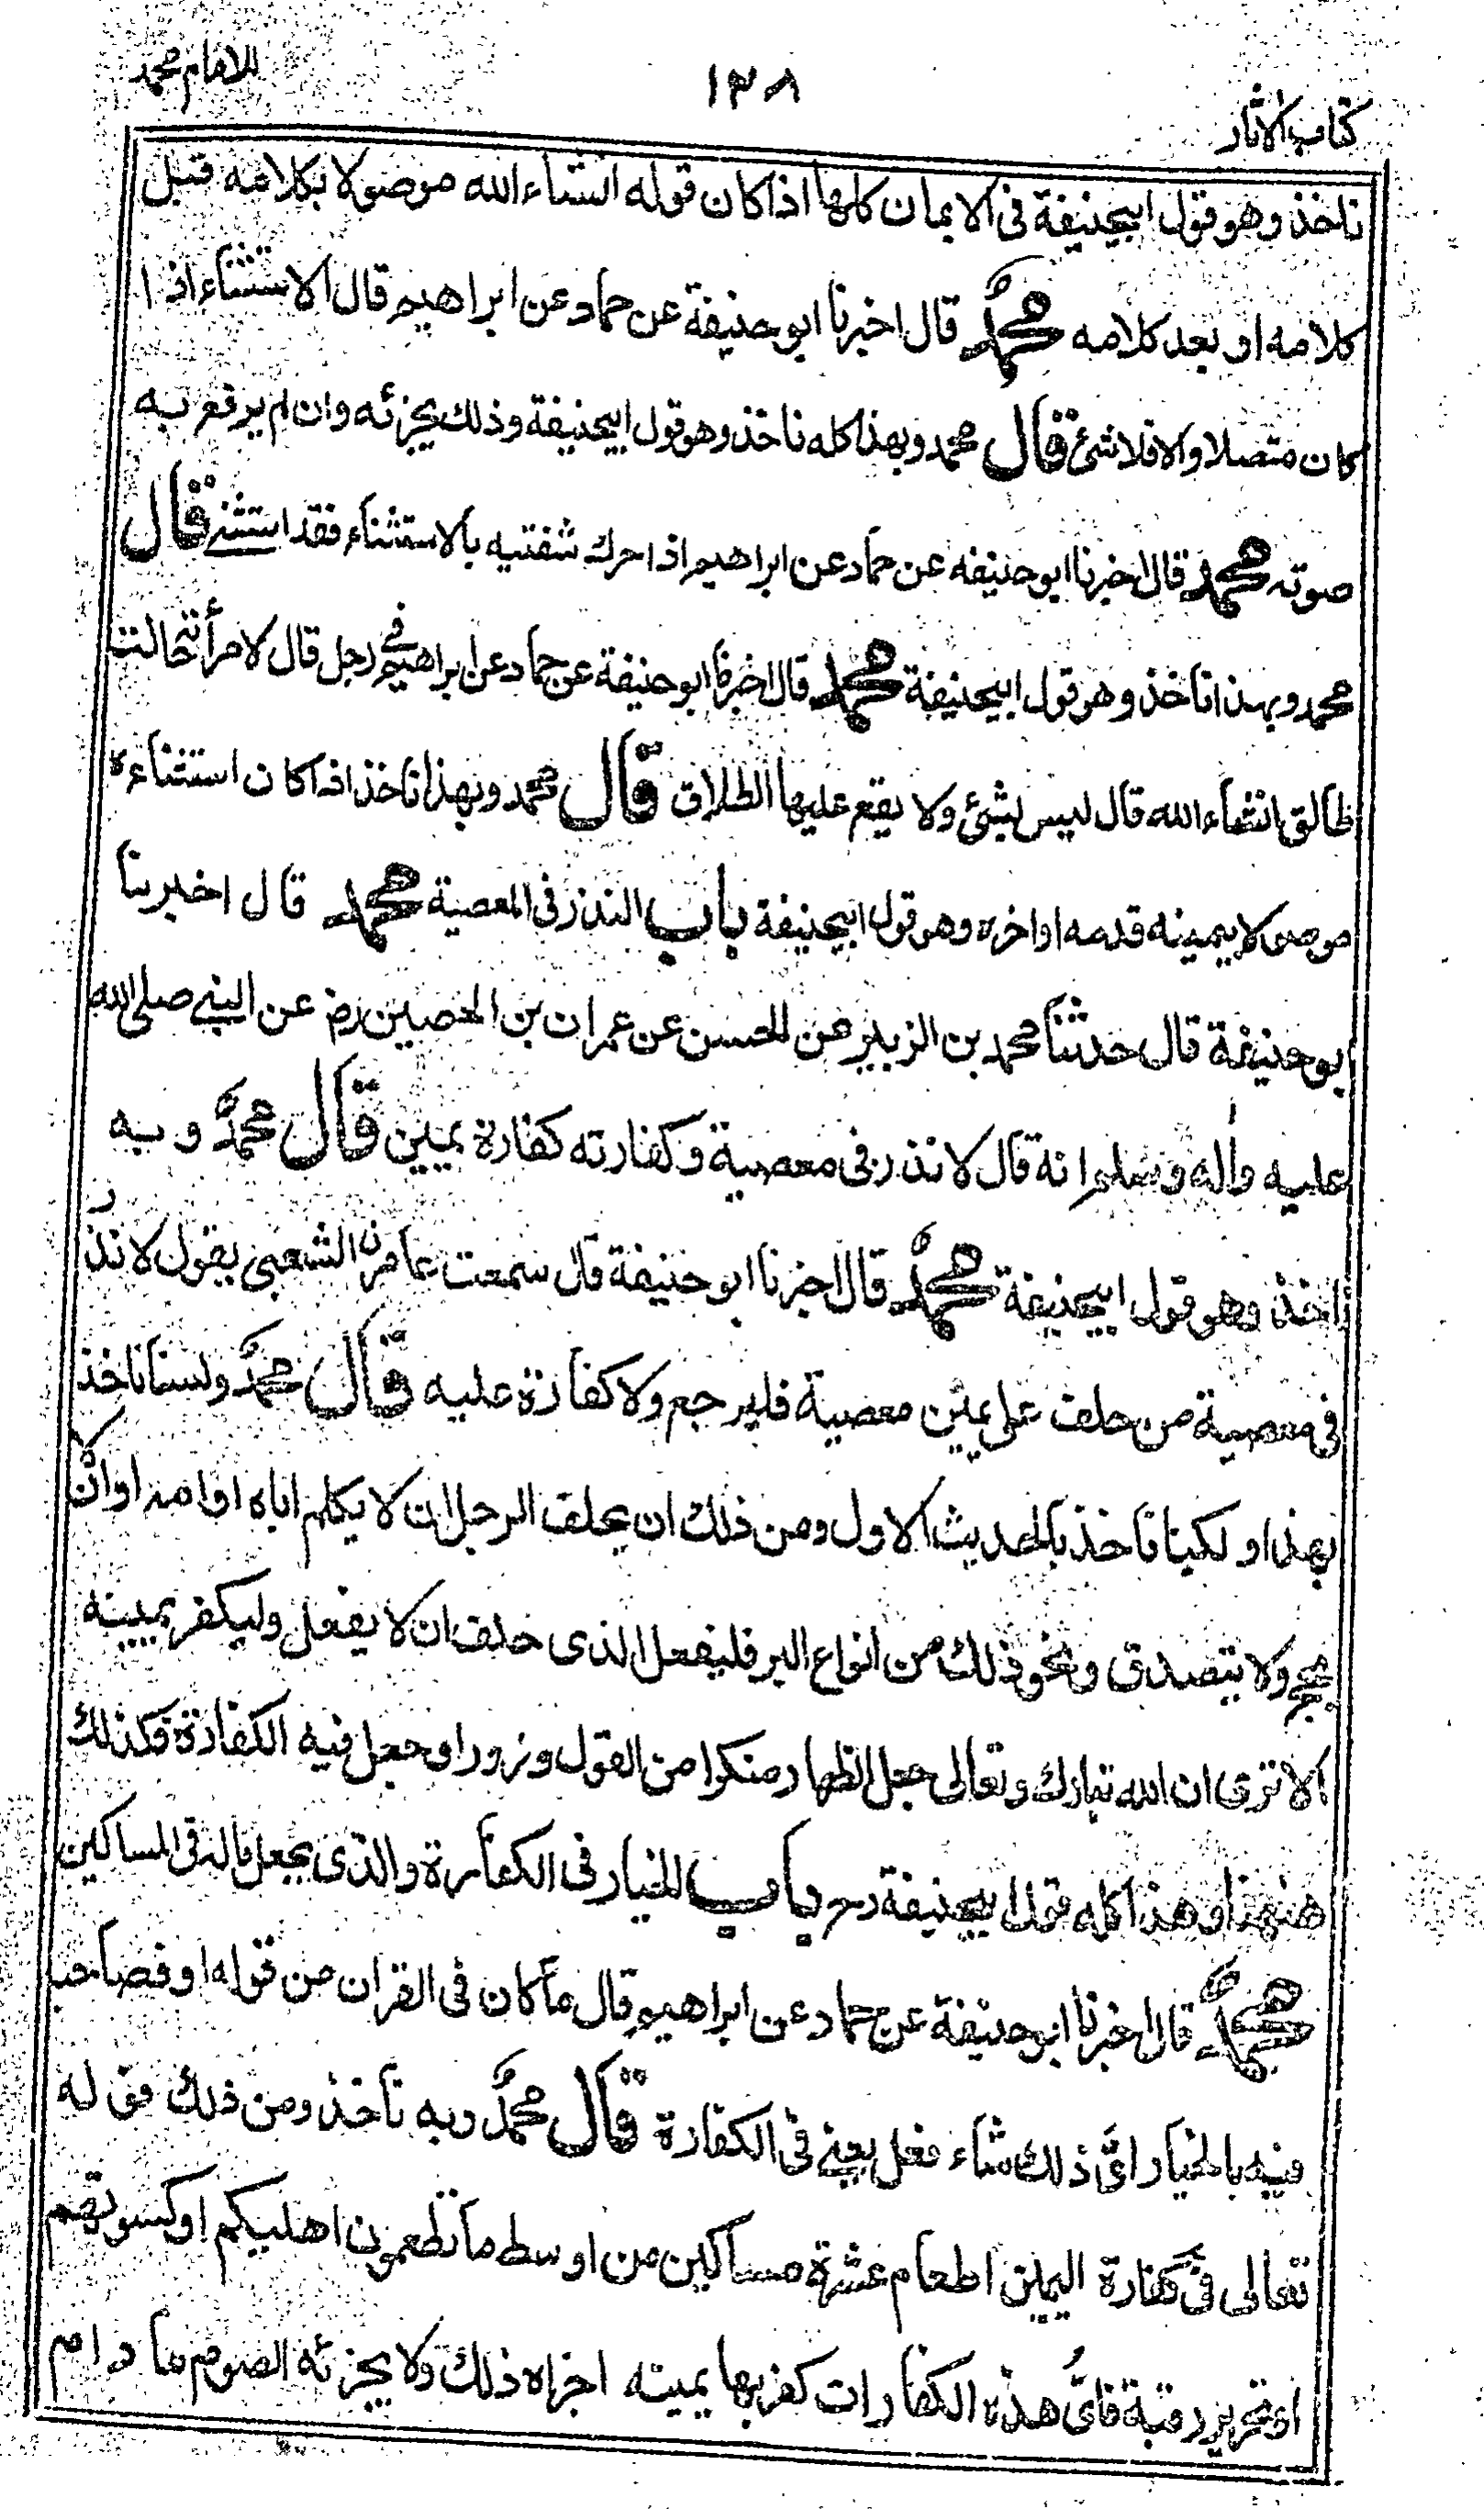 كتاب الاثار
١٣٨
للامام محمد
ناخذ وهو قول ابيحنيفة فى الايمان كلها اذا كان قوله انشاء الله موصولا بكلامه قبل
كلامه او بعد كلامه محمدٌ قال اخبرنا ابو حنيفة عن حماد عن ابراهيم قال الاستثناء اذا
كان متصلا والا فلا شئ قال محمد وبهذا كله ناخذ وهو قول ابيحنيفة وذلك يجزئه وان لم يرفع به
صوته محمد قال اخبرنا ابو حنيفه عن حماد عن ابراهيم اذا حرك شفتيه بالاستثناء فقد استثنى قال
محمد وبهذا ناخذ وهو قول ابيحنيفة محمد قال اخبرنا ابو حنيفة عن حماد عن ابراهيم فى رجل قال لامرأته انت
طالق انشاء الله قال ليس بشئ ولا يقع عليها الطلاق قال محمد وبهذا ناخذ اذا كان استثناءه
موصولا بيمينه قدمه او اخره وهو قول ابيحنيفة باب النذر فى المعصية محمد قال اخبرنا
ابو حنيفة قال حدثنا محمد بن الزبير عن الحسن عن عمران بن الحصين رض عن النبى صلى الله
عليه واٰله وسلم انه قال لا نذر فى معصية وكفارته كفارة يمين قال محمدٌ وبه
ناخذ وهو قول ابيحنيفة محمدٌ قال اخبرنا ابو حنيفة قال سمعت عامرن الشعبى يقول لا نذر
فى معصية من حلف على يمين معصية فليرجع ولا كفارة عليه قال محمدٌ ولسنا ناخذ
بهذا ولكنا ناخذ بالحديث الاول ومن ذلك ان يحلف الرجل ان لا يكلم اباه او امه او ان لا
يحج ولا يتصدق ونحو ذلك من انواع البر فليفعل الذى حلف ان لا يفعل وليكفر يمينه
الا ترى ان الله تبارك وتعالى جعل الظهار منكرا من القول وزورا وجعل فيه الكفارة فكذلك
ههنا وهذا كله قول ابيحنيفة رح باب الخيار فى الكفارة والذى يجعل ماله فى المساكين
محمدٌ قال اخبرنا ابو حنيفة عن حماد عن ابراهيم قال ما كان فى القران من قوله او فصاحبه
فيه بالخيار اىَّ ذلك شاء فعل يعنى فى الكفارة قال محمدٌ وبه ناخذ ومن ذلك قوله
تعالى فى كفارة اليمين اطعام عشرة مساكين من اوسط ما تطعمون اهليكم او كسوتهم
او تحرير رقبة فاىُّ هذه الكفارات كفر بها يمينه اجزاه ذلك ولا يجزئه الصوم ما دام